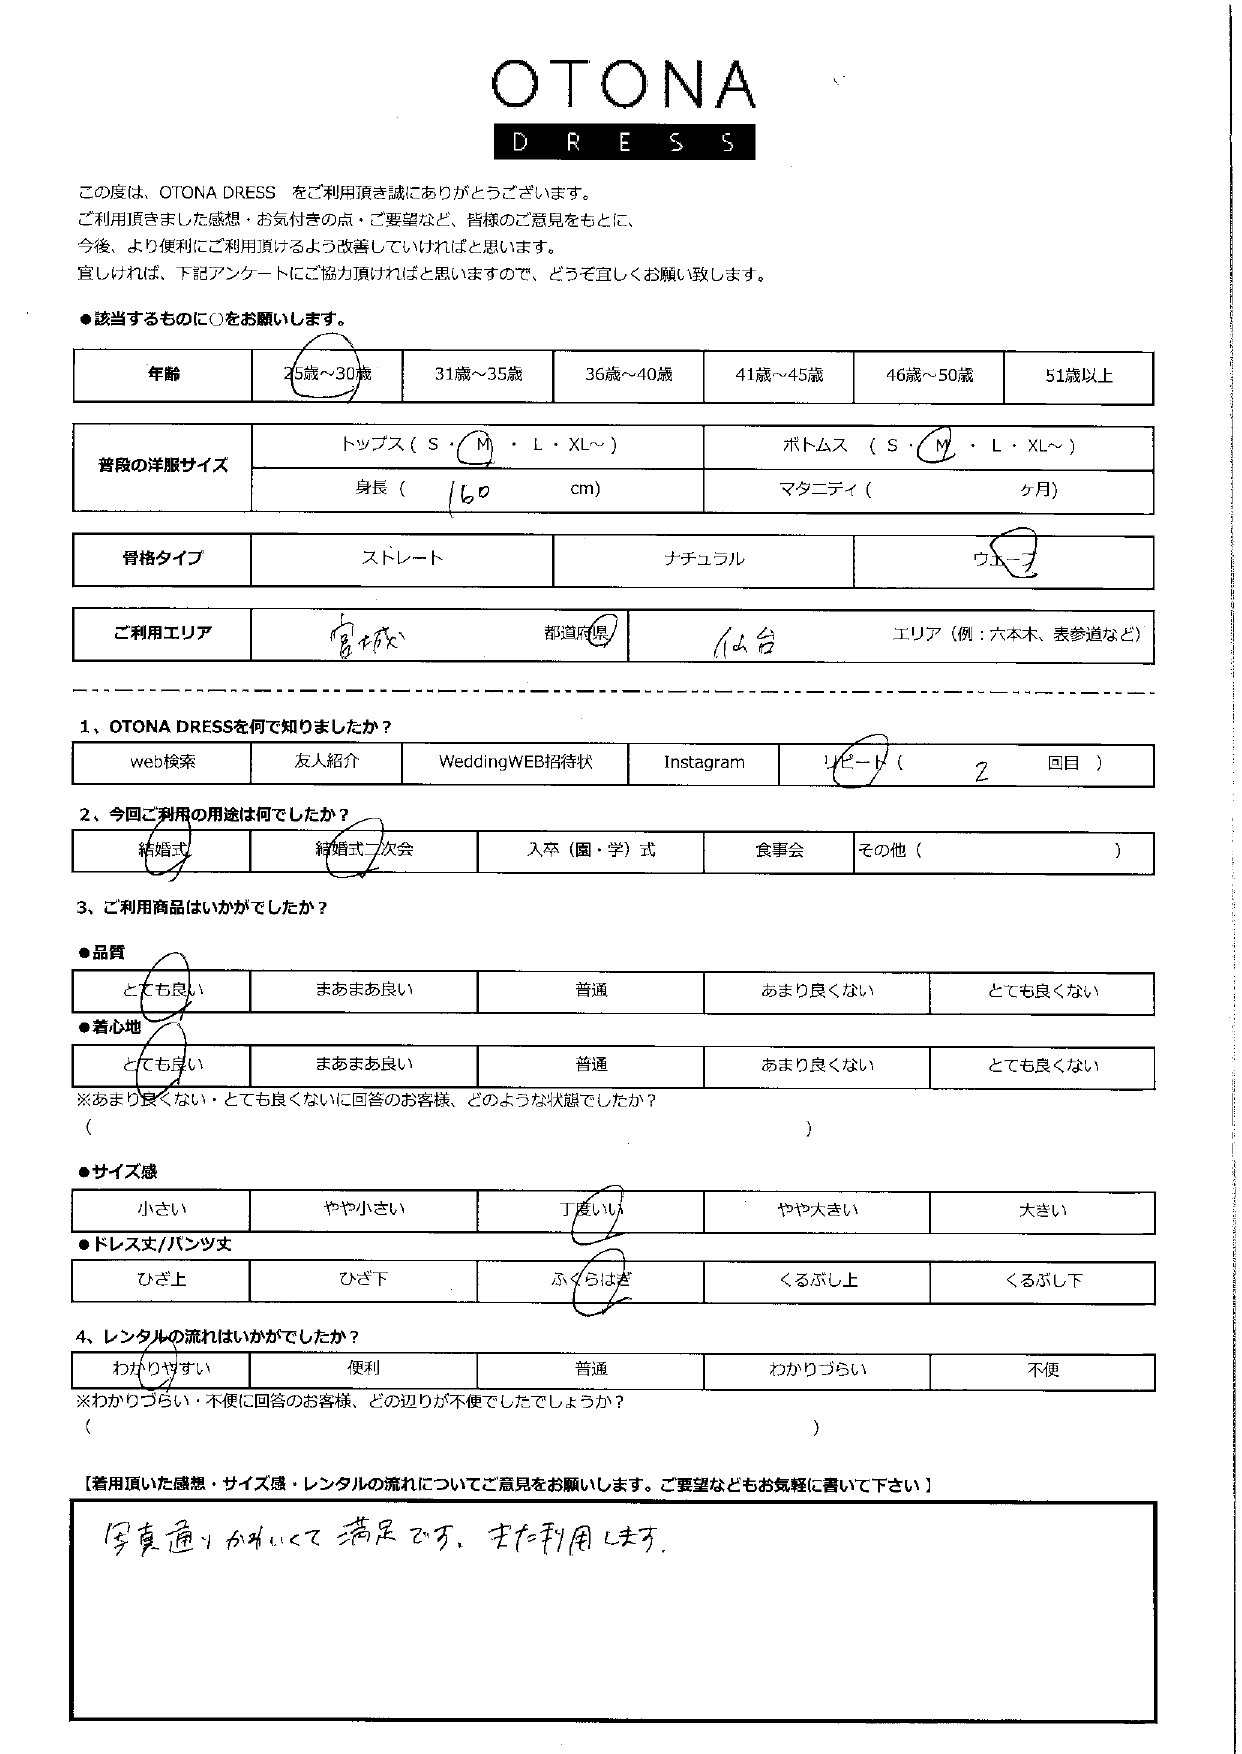 OTONA
DRESS
この度は、OTONA DRESS　をご利用頂き誠にありがとうございます。
ご利用頂きました感想・お気付きの点・ご要望など、皆様のご意見をもとに、
今後、より便利にご利用頂けるよう改善していければと思います。
宜しければ、下記アンケートにご協力頂ければと思いますので、どうぞ宜しくお願い致します。
●該当するものに○をお願いします。
年齢 25歳～30歳 31歳～35歳 36歳～40歳 41歳～45歳 46歳～50歳 51歳以上
普段の洋服サイズ トップス ( S ・ M ・ L ・ XL～ ) ボトムス ( S ・ M ・ L ・ XL～ )
身長 ( 160 cm) マタニティ ( ヶ月)
骨格タイプ ストレート ナチュラル ウェーブ
ご利用エリア 宮城 都道府県 仙台 エリア（例：六本木、表参道など）
1、OTONA DRESSを何で知りましたか？
web検索 友人紹介 WeddingWEB招待状 Instagram リピート ( 2 回目 )
2、今回ご利用の用途は何でしたか？
結婚式 結婚式二次会 入卒（園・学）式 食事会 その他 ( )
3、ご利用商品はいかがでしたか？
●品質
とても良い まあまあ良い 普通 あまり良くない とても良くない
●着心地
とても良い まあまあ良い 普通 あまり良くない とても良くない
※あまり良くない・とても良くないに回答のお客様、どのような状態でしたか？
( )
●サイズ感
小さい やや小さい 丁度いい やや大きい 大きい
●ドレス丈/パンツ丈
ひざ上 ひざ下 ふくらはぎ くるぶし上 くるぶし下
4、レンタルの流れはいかがでしたか？
わかりやすい 便利 普通 わかりづらい 不便
※わかりづらい・不便に回答のお客様、どの辺りが不便でしたでしょうか？
( )
【着用頂いた感想・サイズ感・レンタルの流れについてご意見をお願いします。ご要望などもお気軽に書いて下さい】
写真通りかわいくて満足です。また利用します。